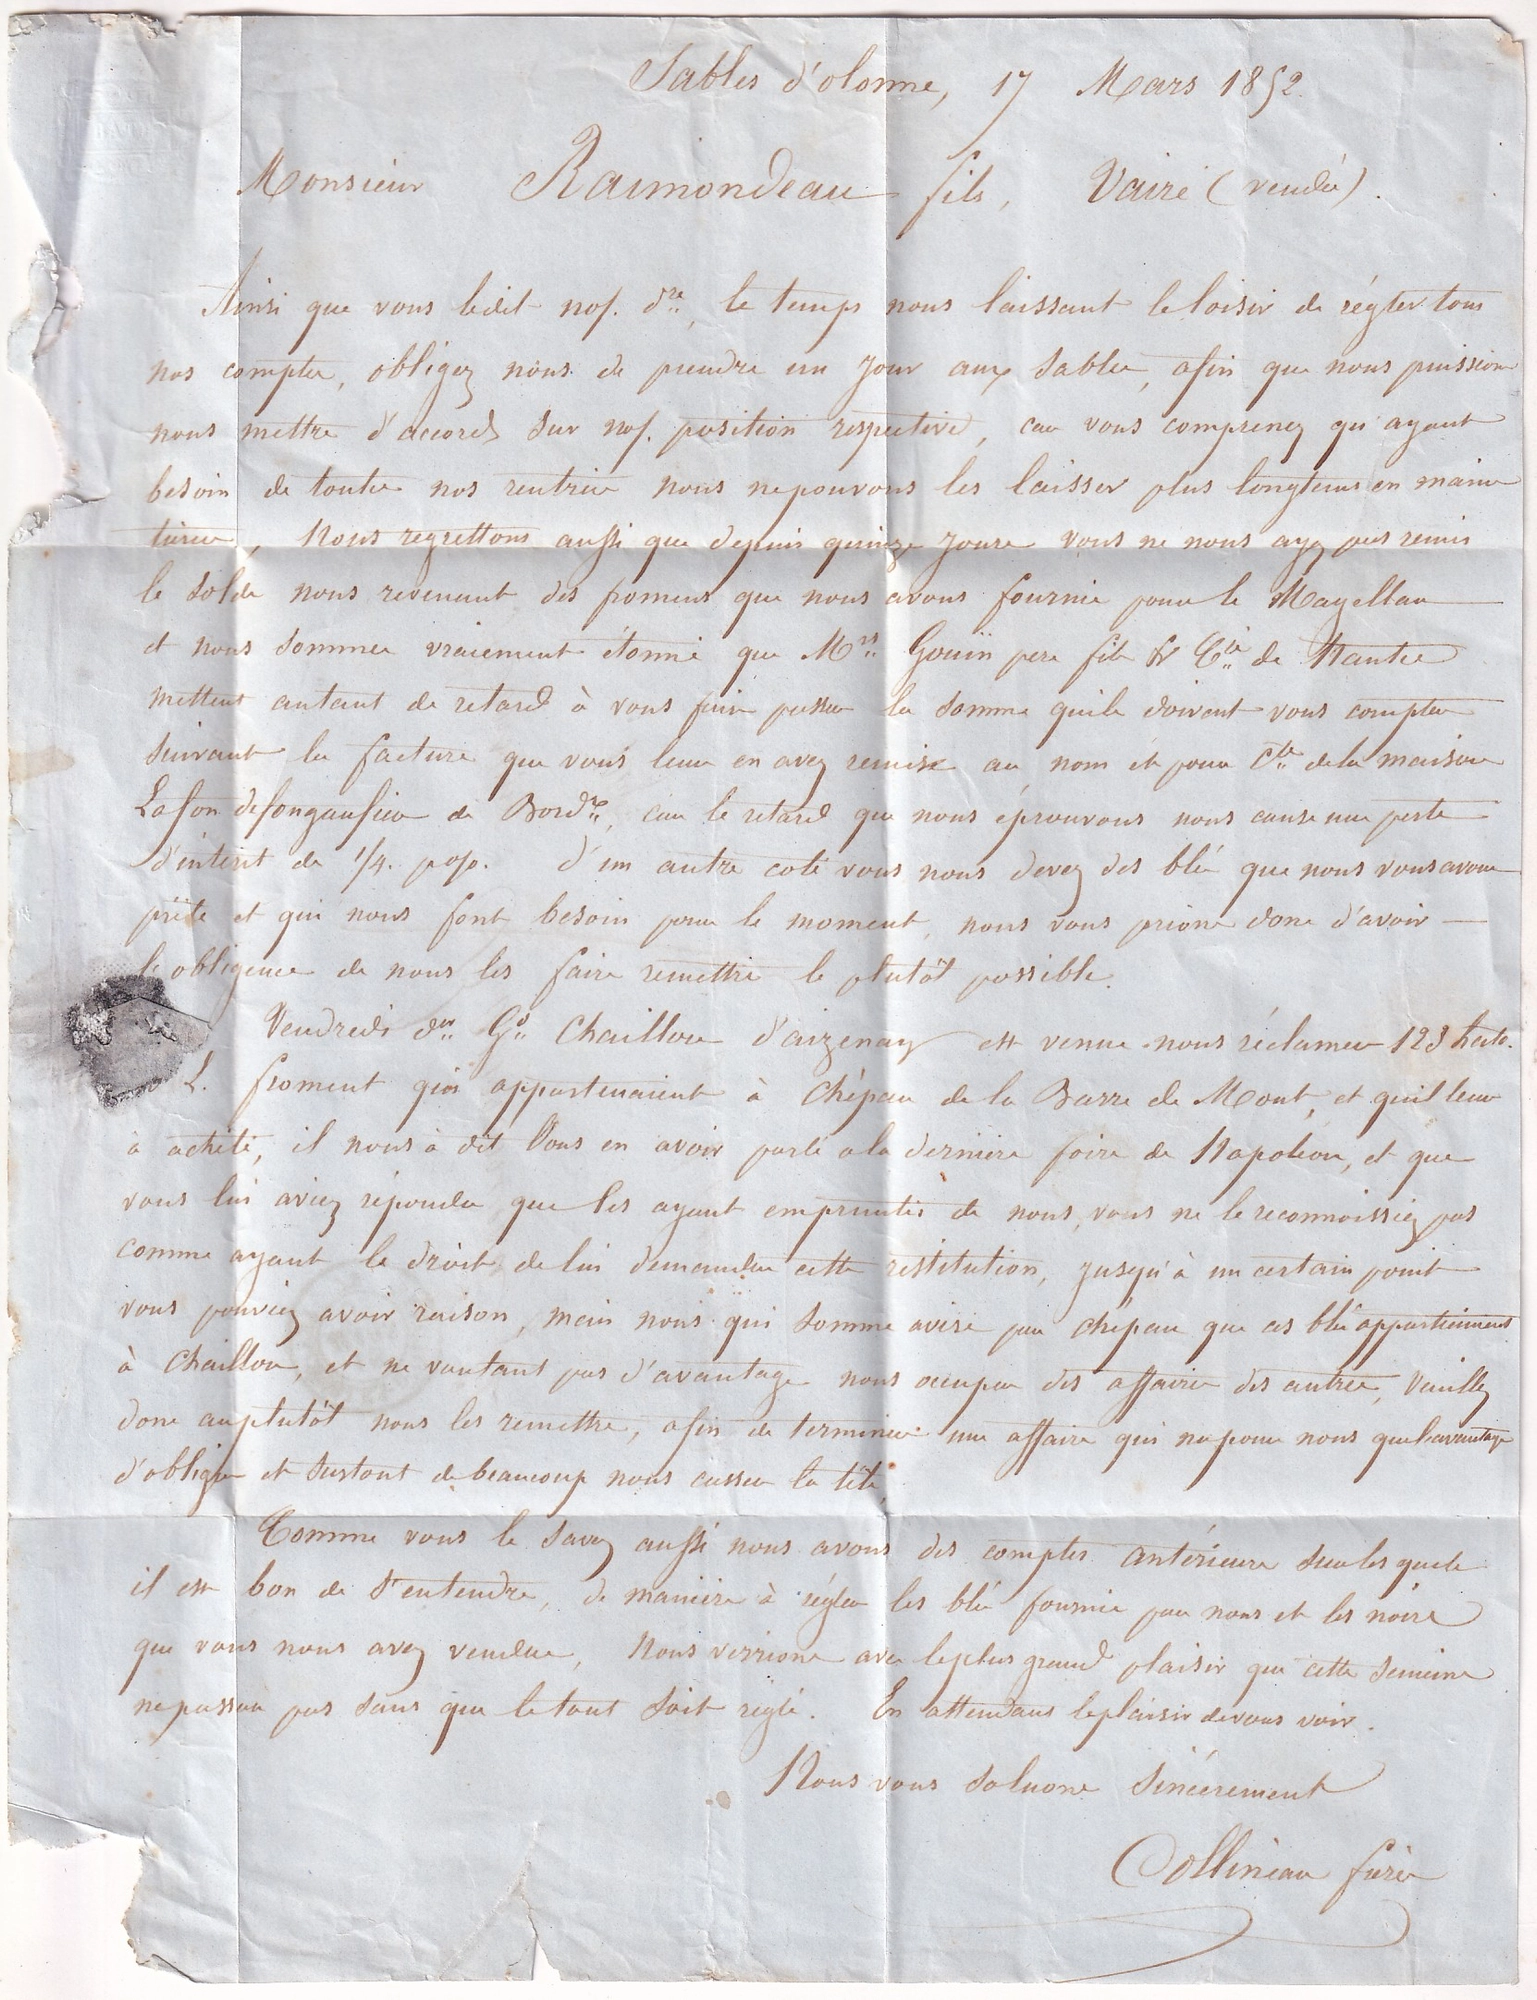 Sables d'olonne, 17 Mars 1852.
Monsieur Raimondeau fils, Vairé (vendée).
Ainsi que vous ledit nos. dre, le temps nous laissant le loisir de régler tous
nos comptes, obligez nous de prendre un jour aux Sables, afin que nous puissions
nous mettre d'accord sur nos. position respective, car vous comprenez qu'ayant
besoin de toutes nos rentrées nous nepouvons les laisser plus longtems en mains
tierces, Nous regrettons aussi que depuis quinze jours vous ne nous ayez pas remis
le solde nous revenant des froments que nous avons fournis pour le Magellan
et nous sommes vraiement étonné que Mrs Goüin pere fils & Cie de Nantes
mettent autant de retard à vous faire passer la somme quils doivent vous compter
suivant la facture que vous leur en avez remise au nom et pour Cte de la maison
Lafon de Bordx, car le retard que nous éprouvons nous cause une perte
d'intérêt de 1/4. po/o. d'un autre coté vous nous devez des blés que nous vous avons
prêté et qui nous font besoin pour le moment, nous vous prions donc d'avoir
l'obligence de nous les faire remettre le plutôt possible.
Vendredi der Gd Chaillou d'aizenay est venue nous réclamer 123 hecto.
L. froment qui appartenaient à Chépau de la Barre de Mont, et qu'il leur
à acheté, il nous à dit Vous en avoir parlé a la derniere foire de Napoléon, et que
vous lui aviez répondu que les ayant empruntés de nous, vous ne le reconnoissiez pas
comme ayant le droit de lui demander cette restitution, jusqu'à un certain point
vous pouviez avoir raison, mais nous qui somme avisé par Chépau que ces blés appartiennent
à Chaillou, et ne voulant pas d'avantage nous occuper des affaires des autres, Veuillez
donc auplutôt nous les remettre, afin de terminer une affaire qui na pour nous que l'avantage
d'obliger et surtout de beaucoup nous casser la tête,
Comme vous le savez aussi nous avons des comptes antérieurs sur lesquels
il est bon de s'entendre, de manière à régler les blés fournis par nous et les noirs
que vous nous avez vendus, Nous verrions avec leplus grand plaisir que cette semaine
nepassa pas sans que letout soit réglé. En attendans leplaisir devous voir.
Nous vous saluons Sincèrement
Collineau frères